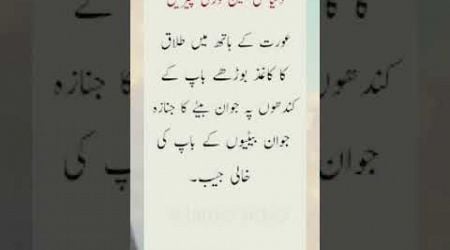 عورت کے ہاتھ میں طلاق
کا کاغذ بوڑھے باپ کے
کندھوں پہ جوان بیٹے کا جنازہ
جوان بیٹیوں کے باپ کی
خالی جیب۔